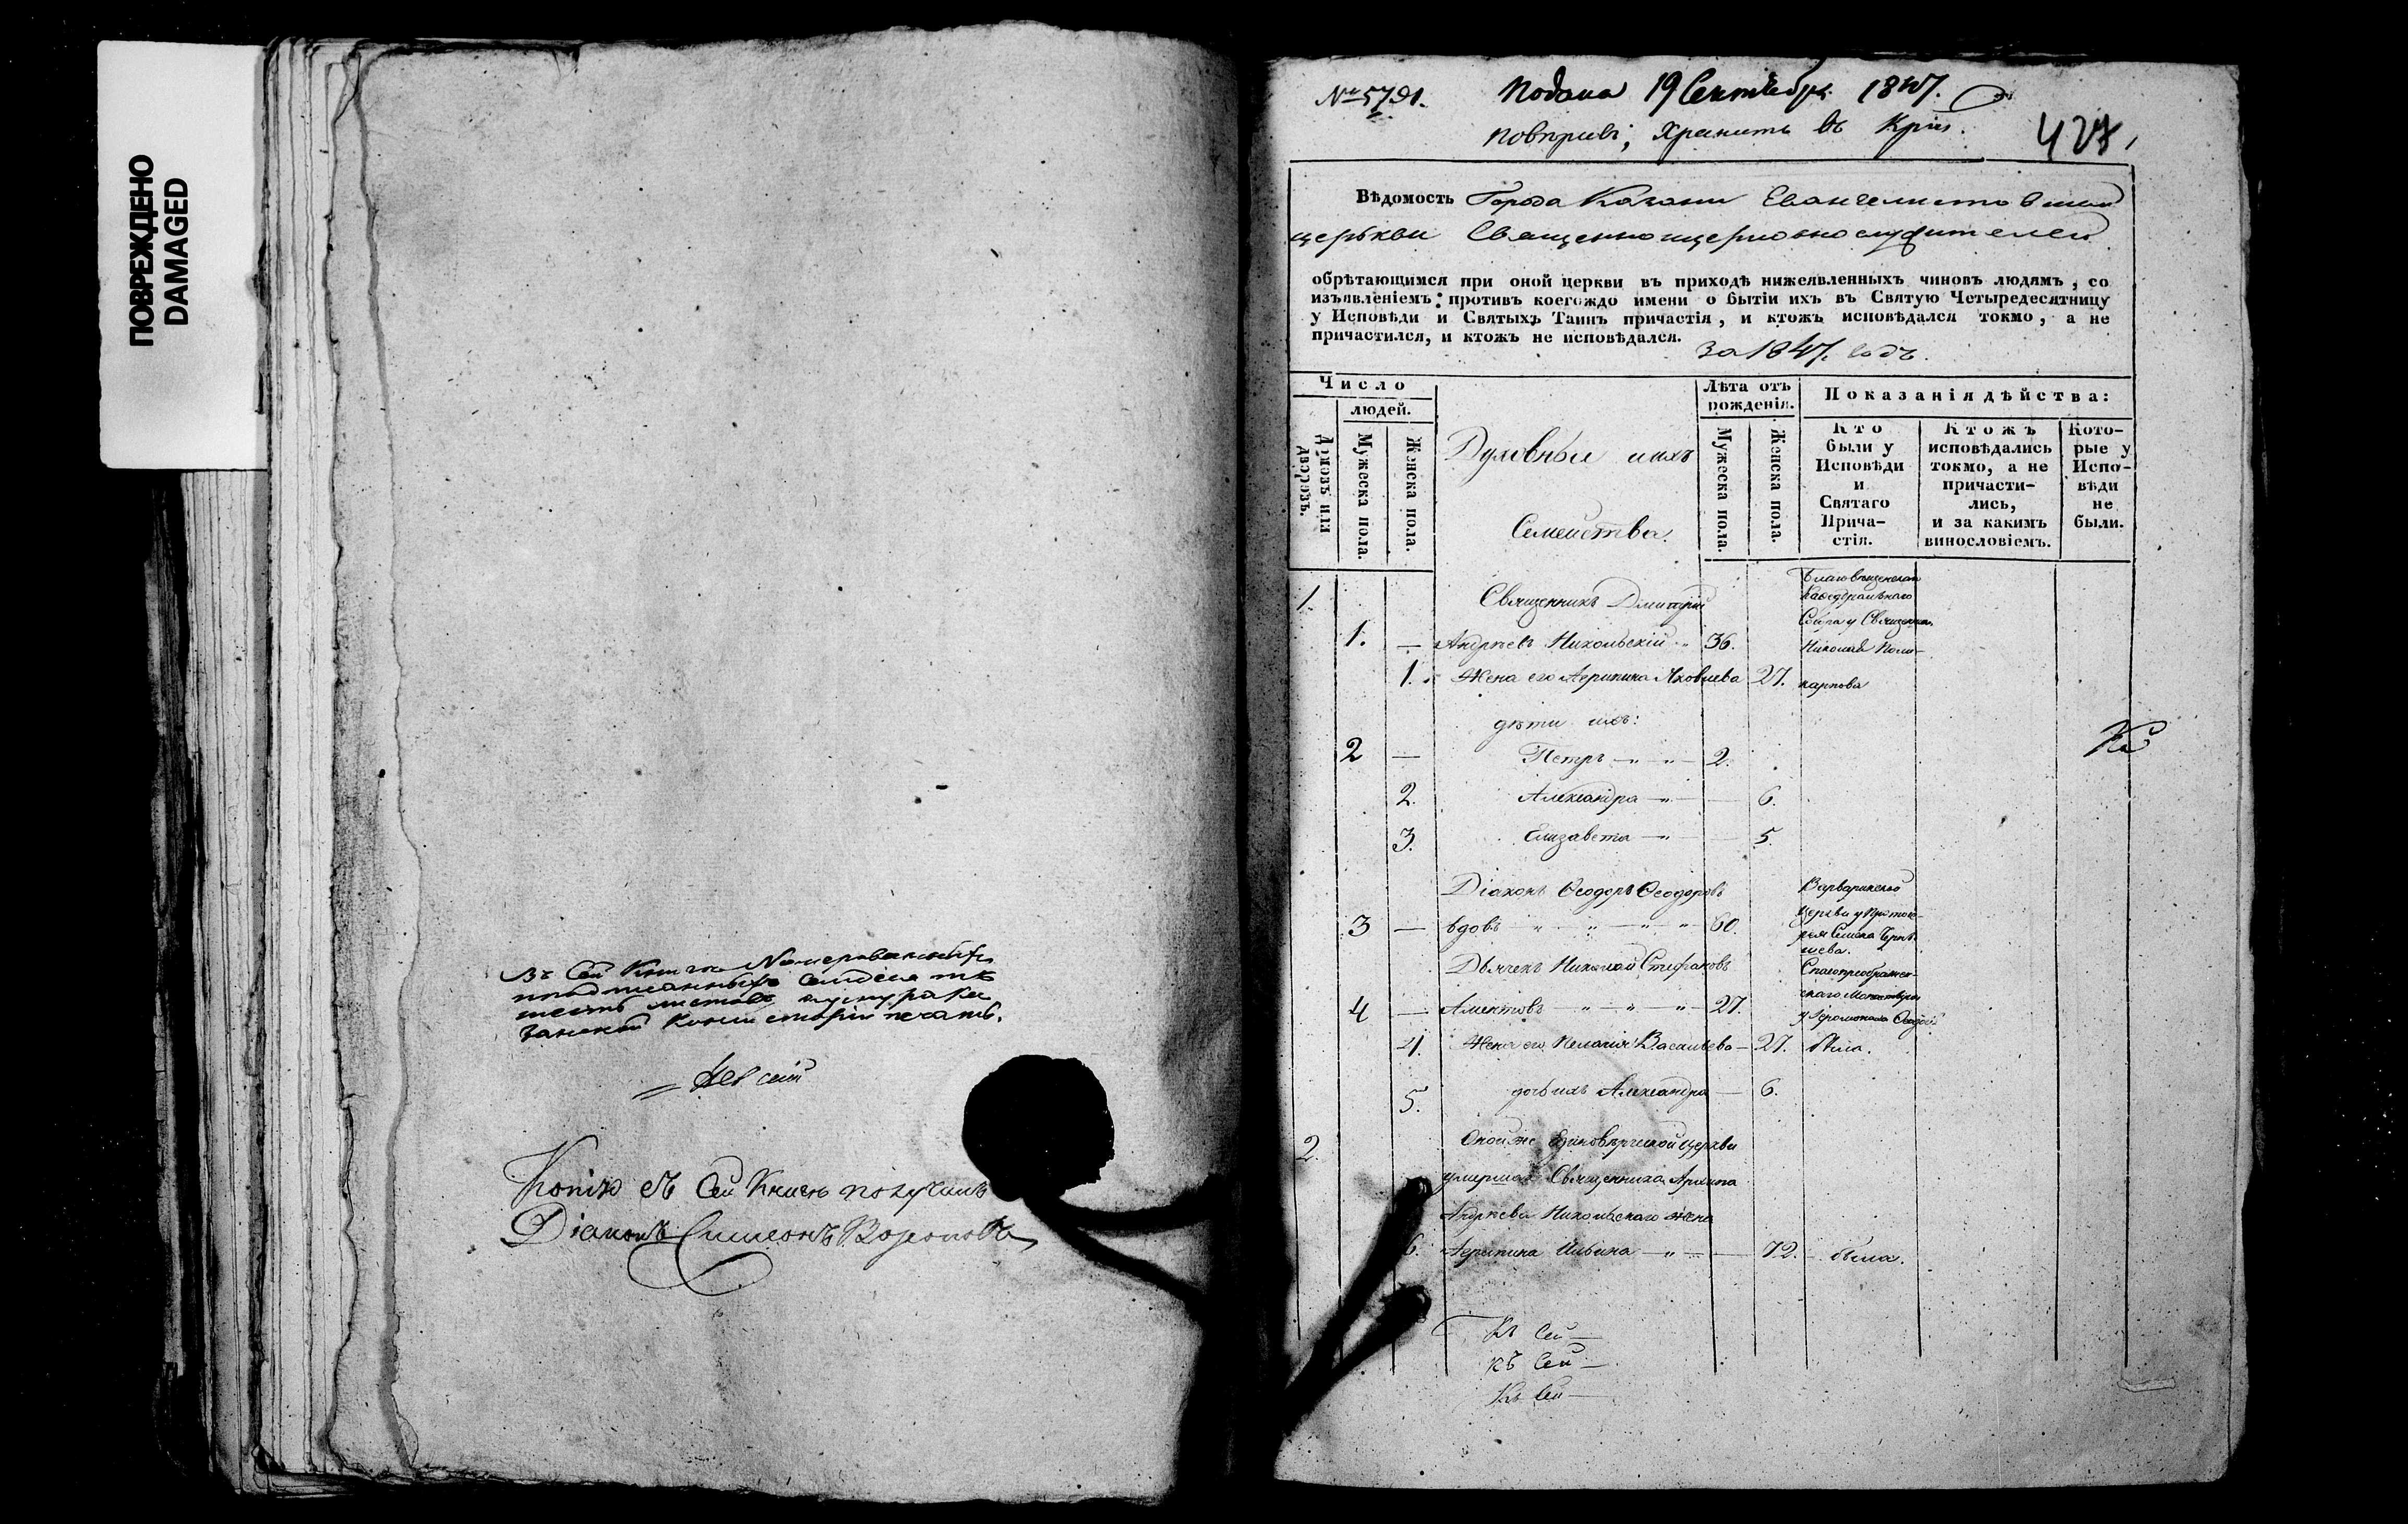 ПОВРЕЖДЕНО
DAMAGED
Въ сей Книге Номерованныхъ
шесть листовъ
печать.
Копiю съ сей Книги получилъ
Дiаконъ Симеонъ
№ 5791.
Подана 19 Сентября 1847.
Хранить въ
427
Вѣдомость Города Казани Евангелистовской
церькви Священноцерковнослужителей
обрѣтающимся при оной церкви въ приходѣ нижеявленныхъ чиновъ людямъ, со
изъявленіемъ: противъ коегождо имени о бытіи ихъ въ Святую Четыредесятницу
у Исповѣди и Святыхъ Таинъ причастія, и ктожъ исповѣдался токмо, а не
причастился, и ктожъ не исповѣдался.
За 1847. годъ.
Число
людей.
Домовъ или дворовъ.
Мужеска пола.
Женска пола.
Духовные ихъ
Семейства.
Лѣта отъ рожденія.
Мужеска пола.
Женска пола.
Показанія дѣйства:
Кто были у Исповѣди и Святаго Прича-стія.
Ктожъ исповѣдались токмо, а не причасти-лись, и за какимъ винословіемъ.
Кото-рые у Испо-вѣди не были.
1. Священникъ Димитрій
Благовѣщенскаго
Кафедральнаго
Собора у Священника
1. — Андреевъ Никольскій 36.
Николая Поли-
1. Жена его Агрипина Яковлева 27.
карпова
дѣти ихъ:
2 — Петръ — 2.
2. Александра — 6.
3. Елизавета — 5.
Дiаконъ Ѳеодоръ Ѳеодоровъ
Варваринской
церкви у Протоіе-
3 — вдовъ 60.
рея
Дьячекъ Николай Стефановъ
Спасопреображен-
скаго Монастыря
4 — 27.
у Іеромонаха
4. Жена его Пелагія Васильева — 27. была.
5. дочь ихъ Александра — 6.
2. Оной же Единовѣрческой церкви
умершаго Священника
Андреева Никольскаго жена
6. Агрипина Ильина — 72. — была.
Къ Сей —
Къ Сей —
Къ Сей —